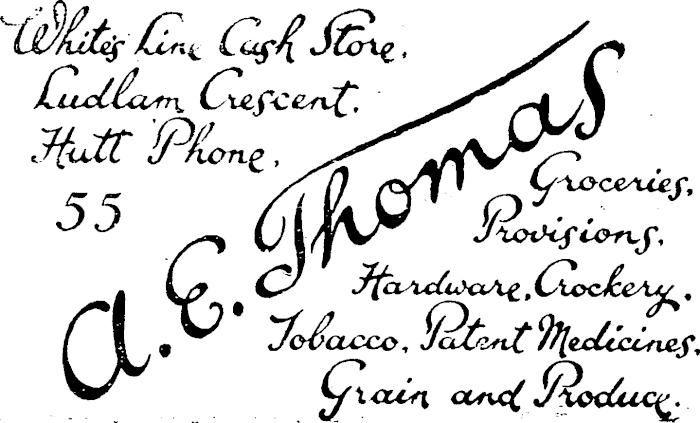 White's Line Cash Store.
Ludlam Crescent.
Hutt Phone.
55
A. E. Thomas
Groceries.
Provisions.
Hardware. Crockery.
Tobacco. Patent Medicines.
Grain and Produce.